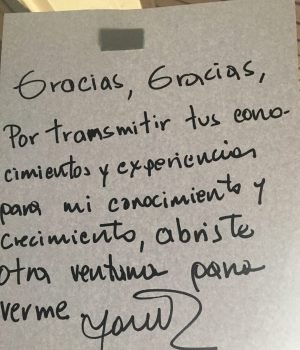 Gracias, Gracias,
Por transmitir tus cono-
cimientos y experiencias
para mi conocimiento y
crecimiento, abriste
otra ventana para
verme